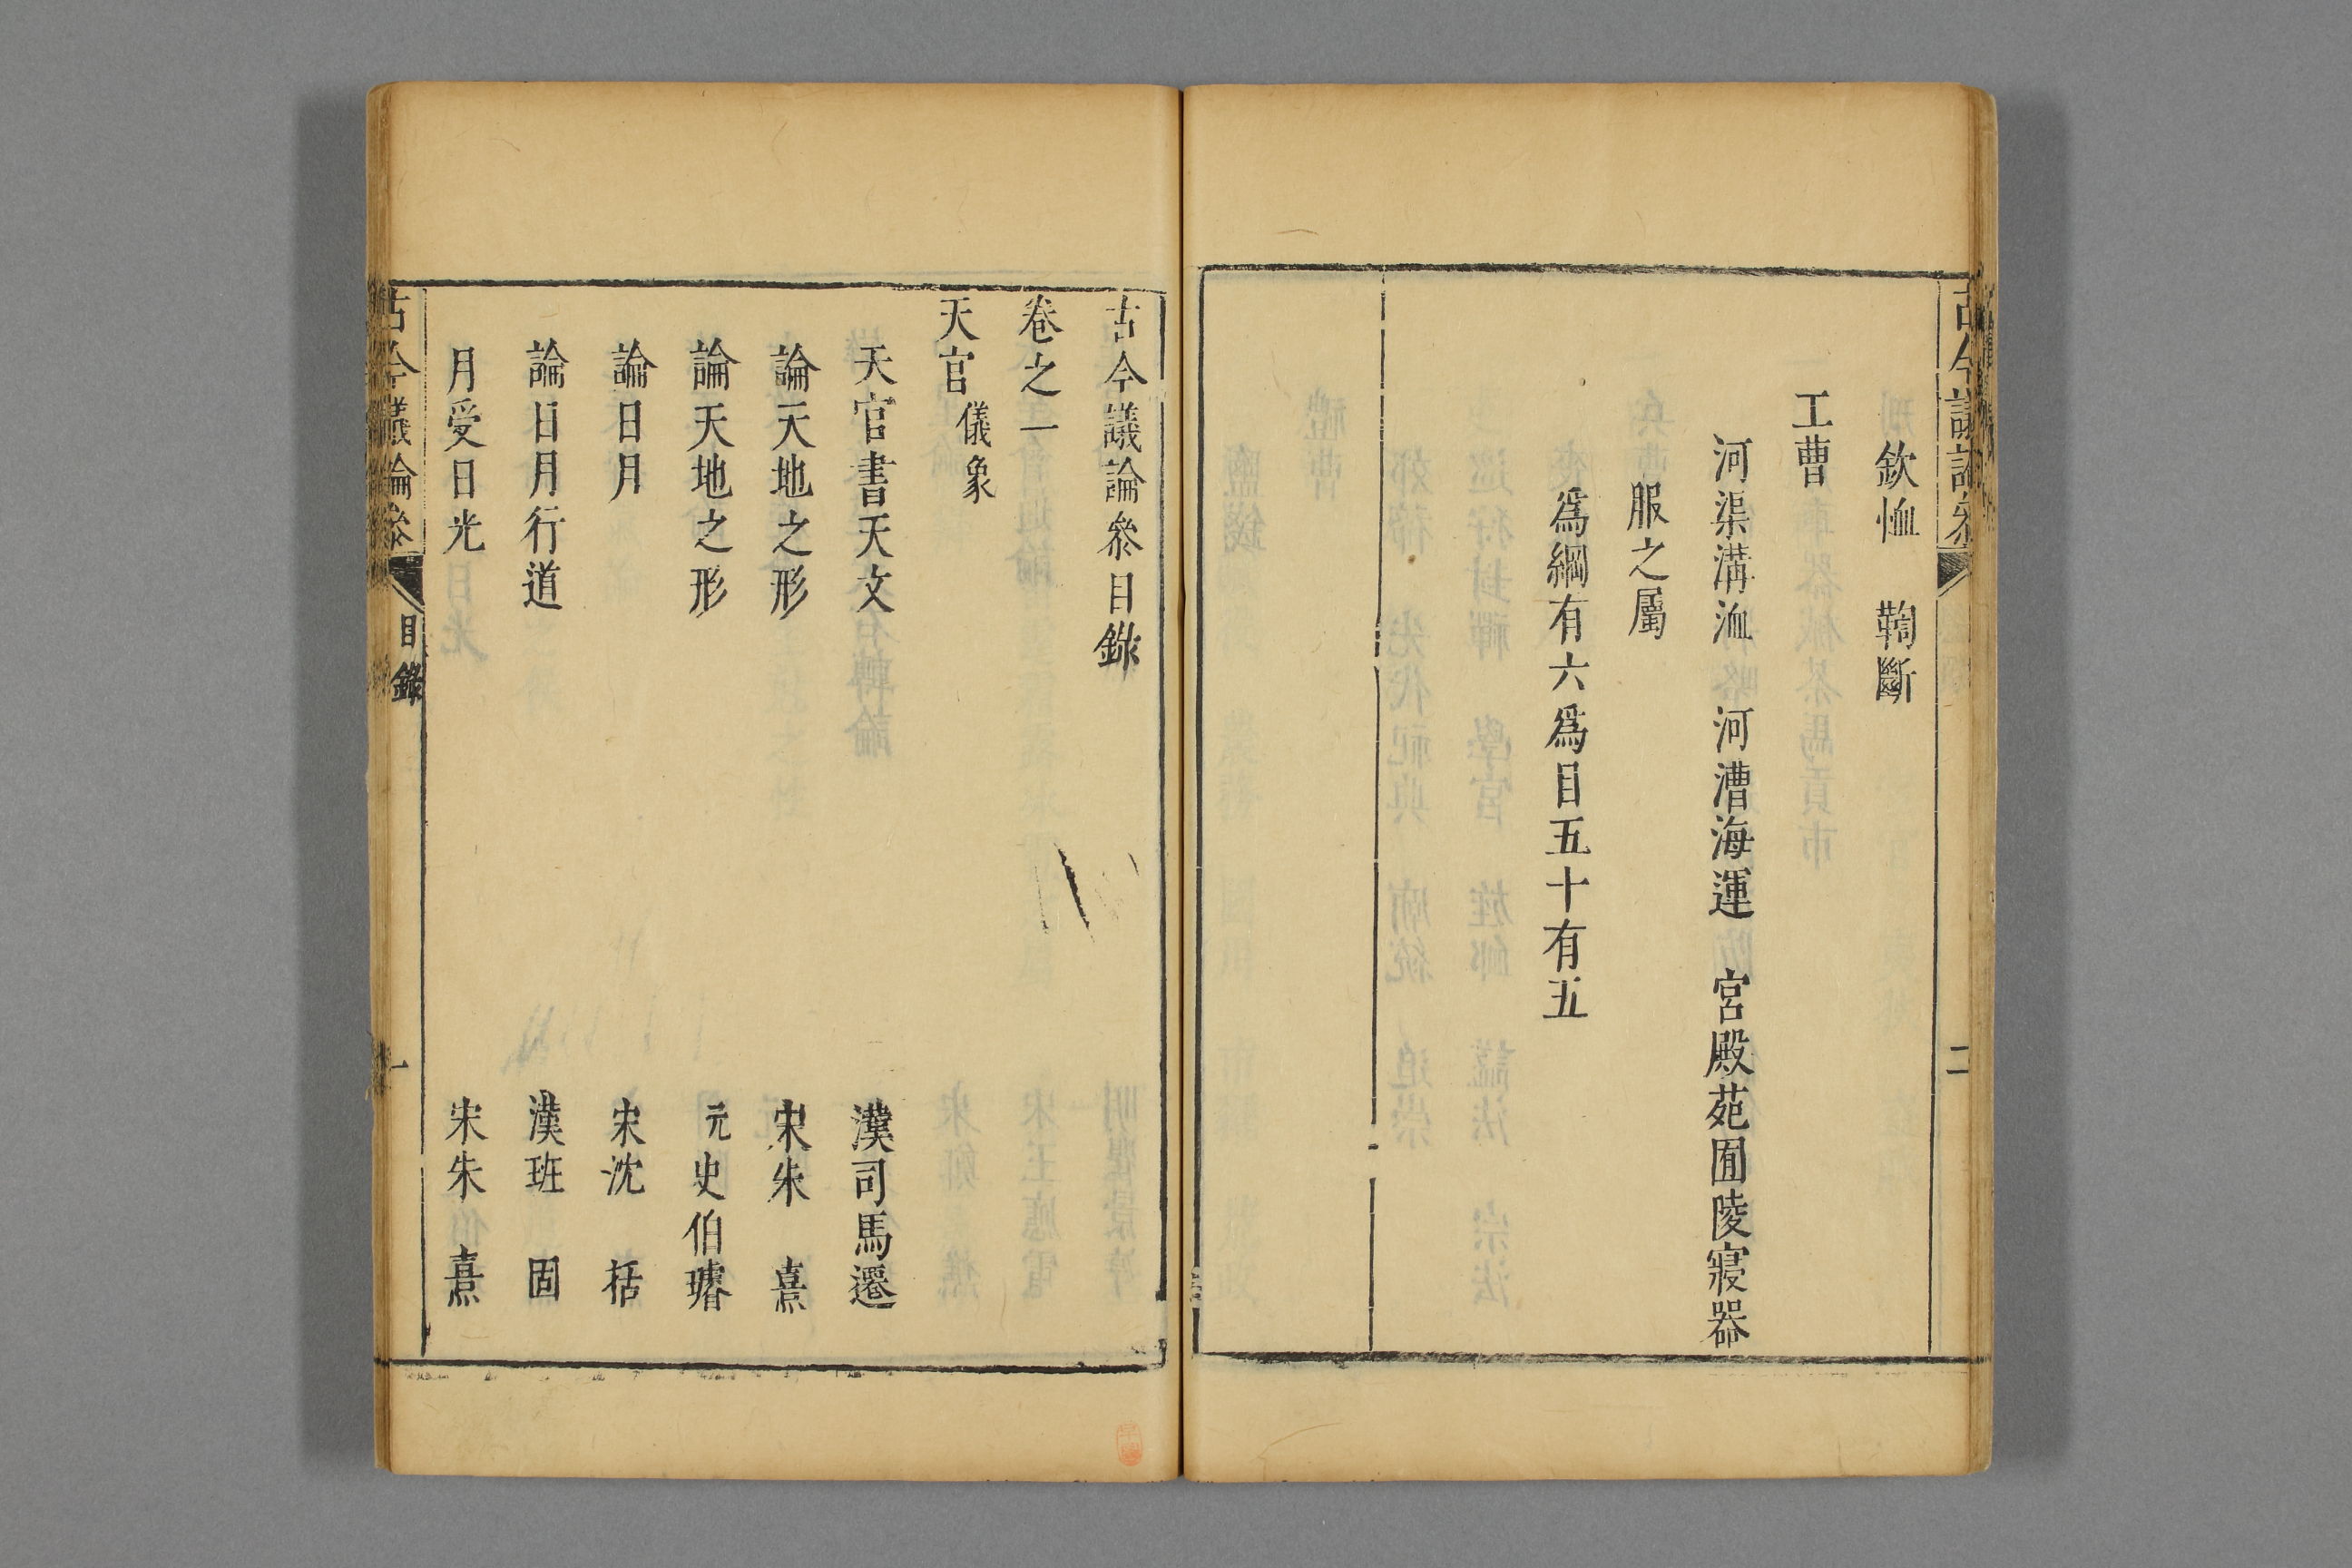 古今議論參
二
欽恤　鞫斷
工曹
河渠溝洫　河漕海運　宮殿苑囿陵寢器
服之屬
爲綱有六爲目五十有五
古今議論叅目錄
卷之一
天官 儀象
天官書天文　漢司馬遷
論天地之形　宋朱熹
論天地之形　元史伯璿
論日月　宋沈括
論日月行道　漢班固
月受日光　宋朱熹
古今議論叅
目錄
一